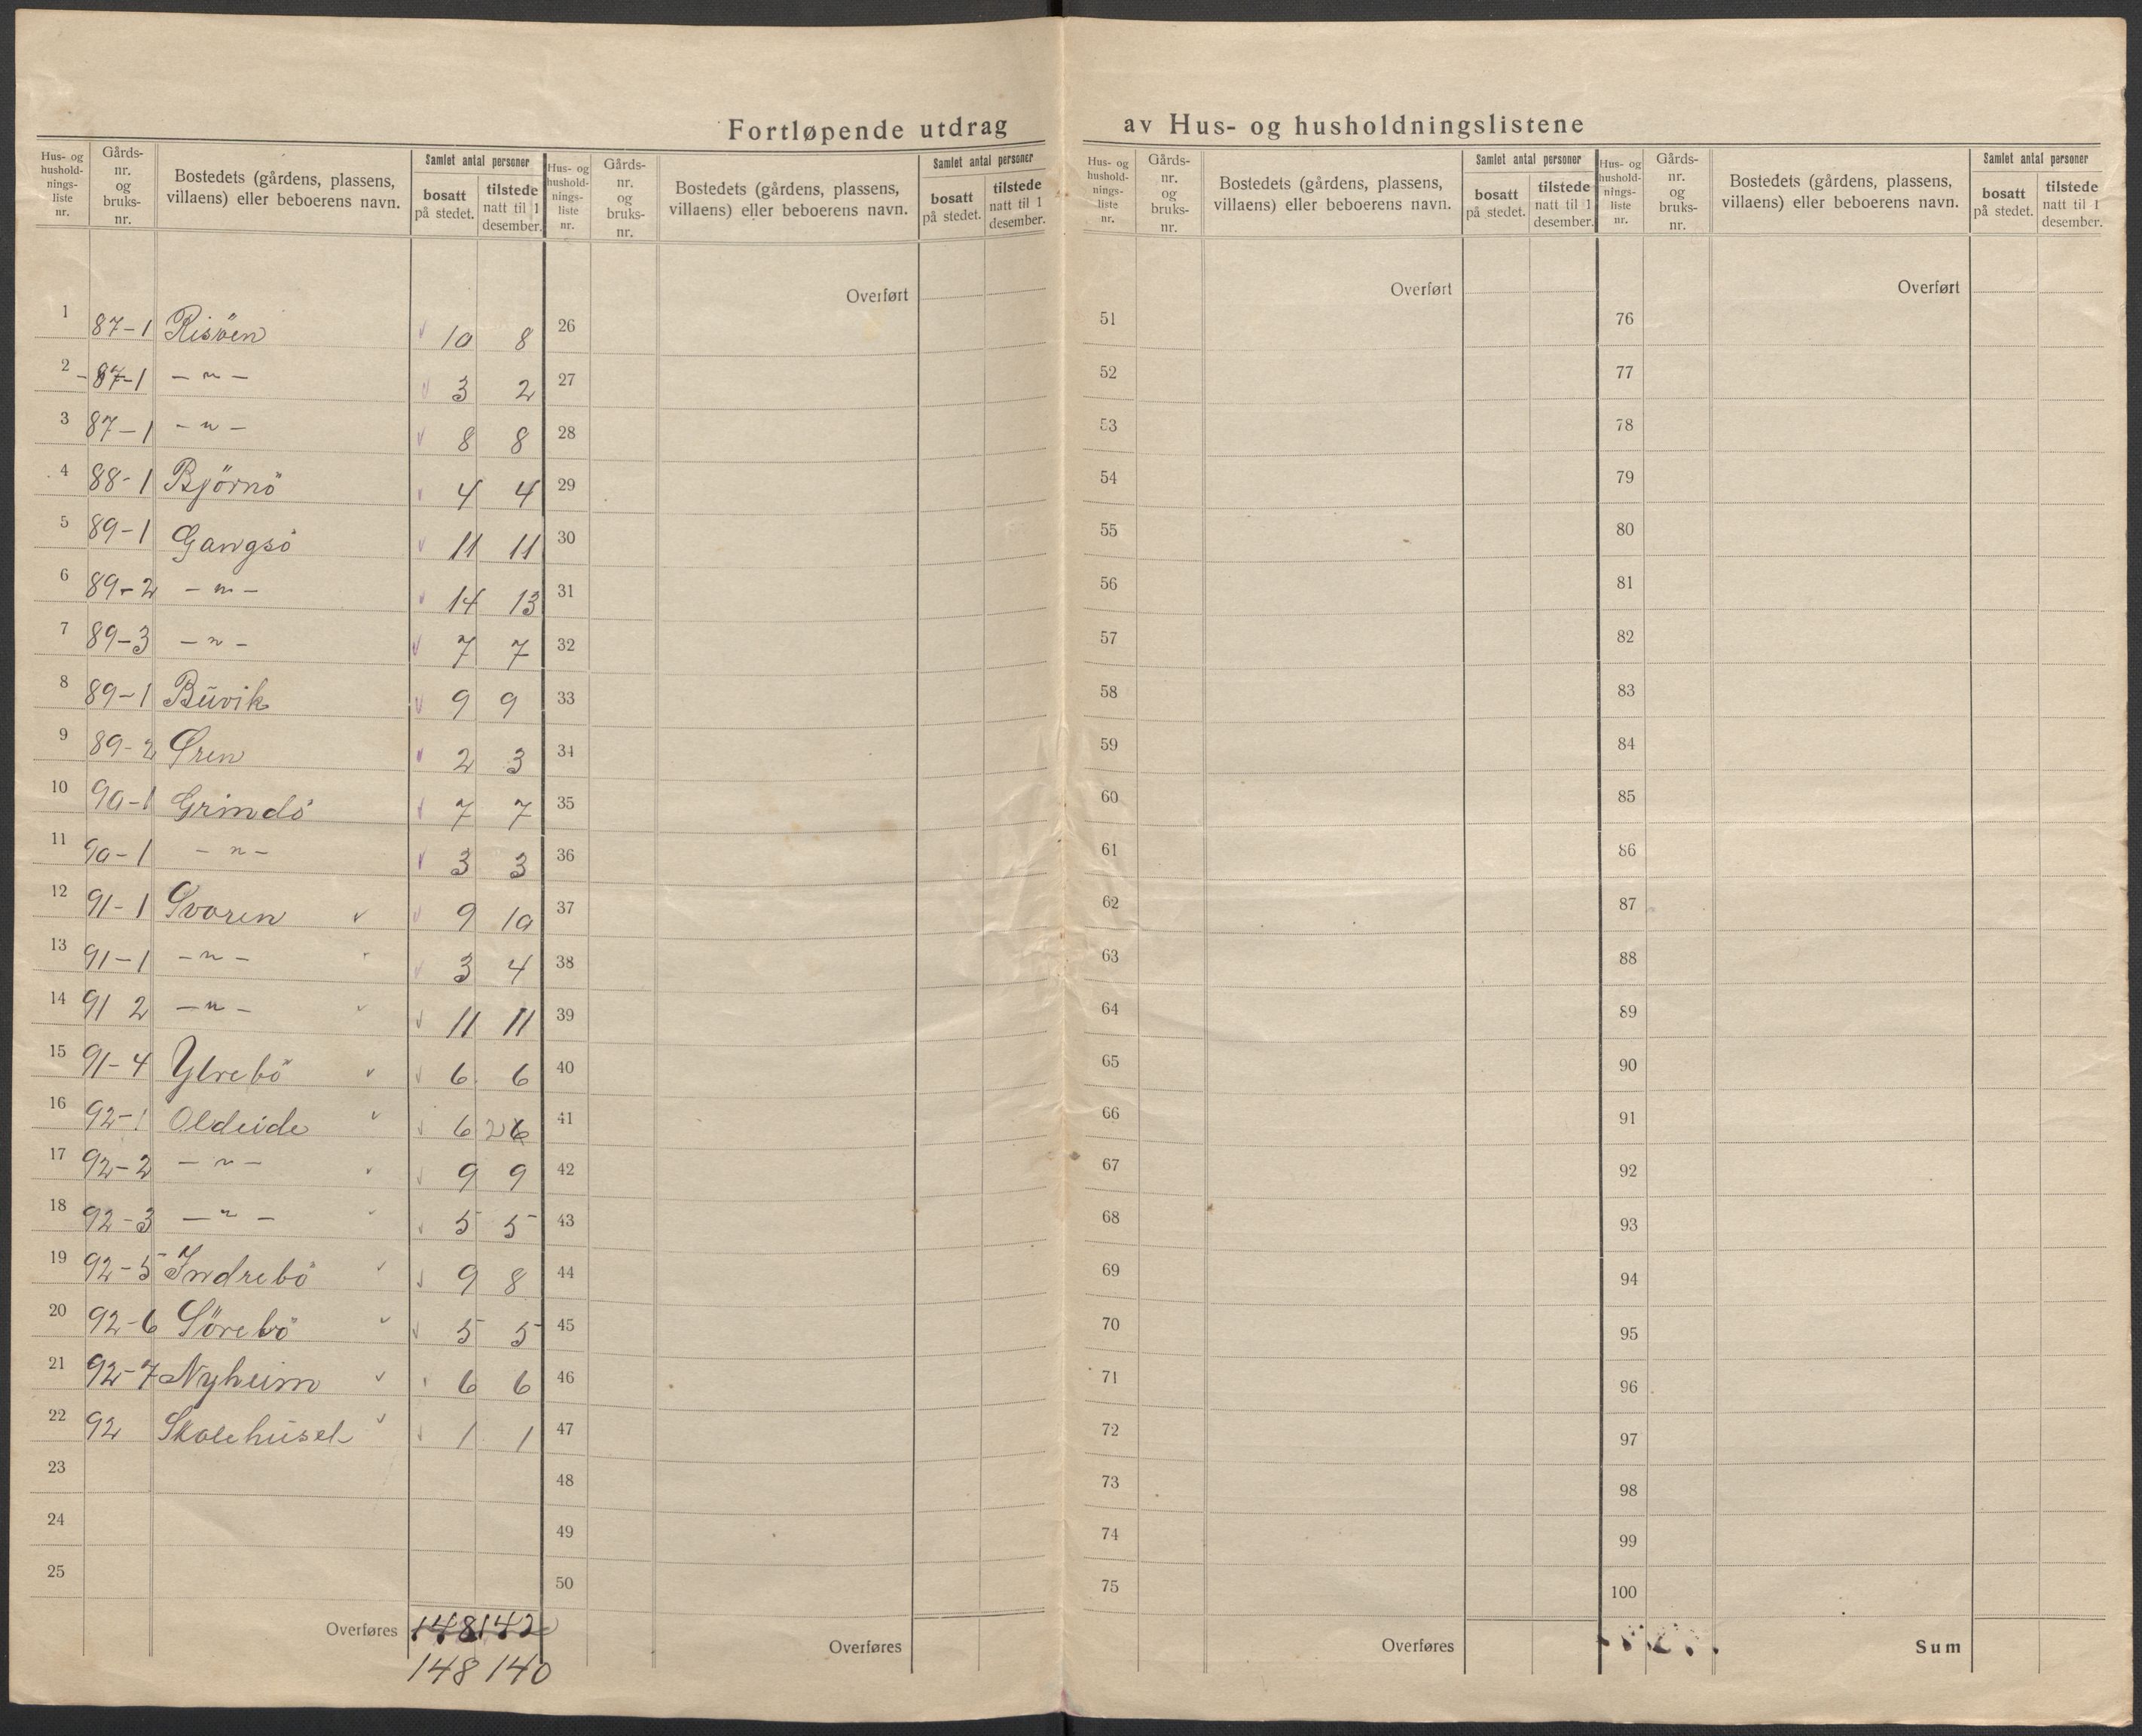 Fortløpende utdrag av Hus- og husholdningslistene
Hus- og hushold- nings- liste nr. Gårds- nr. og bruks- nr. Bostedets (gårdens, plassens, villaens) eller beboerens navn. Samlet antal personer bosatt på stedet. tilstede natt til 1 desember.
Hus- og hushold- nings- liste nr. Gårds- nr. og bruks- nr. Bostedets (gårdens, plassens, villaens) eller beboerens navn. Samlet antal personer bosatt på stedet. tilstede natt til 1 desember.
Hus- og hushold- nings- liste nr. Gårds- nr. og bruks- nr. Bostedets (gårdens, plassens, villaens) eller beboerens navn. Samlet antal personer bosatt på stedet. tilstede natt til 1 desember.
Hus- og hushold- nings- liste nr. Gårds- nr. og bruks- nr. Bostedets (gårdens, plassens, villaens) eller beboerens navn. Samlet antal personer bosatt på stedet. tilstede natt til 1 desember.
Overført Overført Overført
1 87-1 Risöen 10 8 26 51 76
2 -87-1 -"- 3 2 27 52 77
3 87-1 -"- 8 8 28 53 78
4 88-1 Björnö 4 4 29 54 79
5 89-1 Gangsö 11 11 30 55 80
6 89-2 -"- 14 13 31 56 81
7 89-3 -"- 7 7 32 57 82
8 89-1 Buvik 9 9 33 58 83
9 89-2 Øren 2 3 34 59 84
10 90-1 Grindö 7 7 35 60 85
11 90-1 -"- 3 3 36 61 86
12 91-1 Svoren 9 10 37 62 87
13 91-1 -"- 3 4 38 63 88
14 91 2 -"- 11 11 39 64 89
15 91-4 Ytrebö 6 6 40 65 90
16 92-1 Oldeide 6 2 6 41 66 91
17 92-2 -"- 9 9 42 67 92
18 92-3 -"- 5 5 43 68 93
19 92-5 Indrebö 9 8 44 69 94
20 92-6 Sörebö 5 5 45 70 95
21 92-7 Nyheim 6 6 46 71 96
22 92 Skolehuset 1 1 47 72 97
23 48 73 98
24 49 74 99
25 50 75 100
Overføres 148 142 Overføres Overføres Sum
148 140